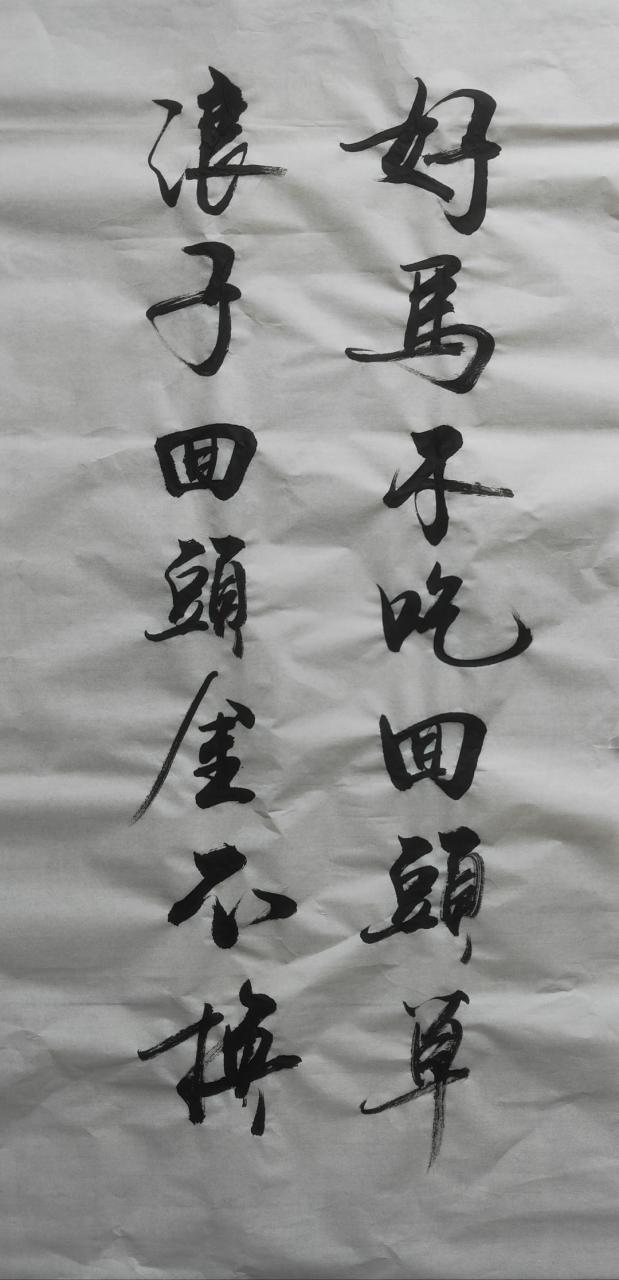 好馬不吃回頭草
浪子回頭金不換